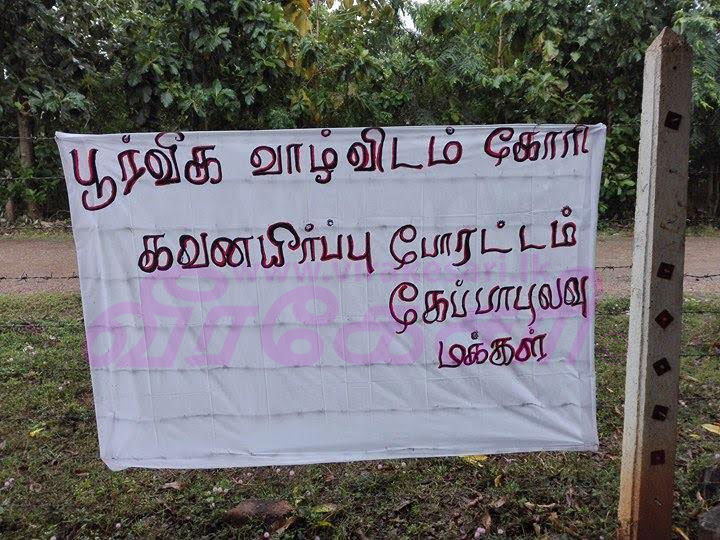 பூர்வீக வாழ்விடம் கோரி
கவனயிர்ப்பு போரட்டம்
www.virakesari.lk
கேப்பாபுலவு
வீரகேசரி
மக்கள்